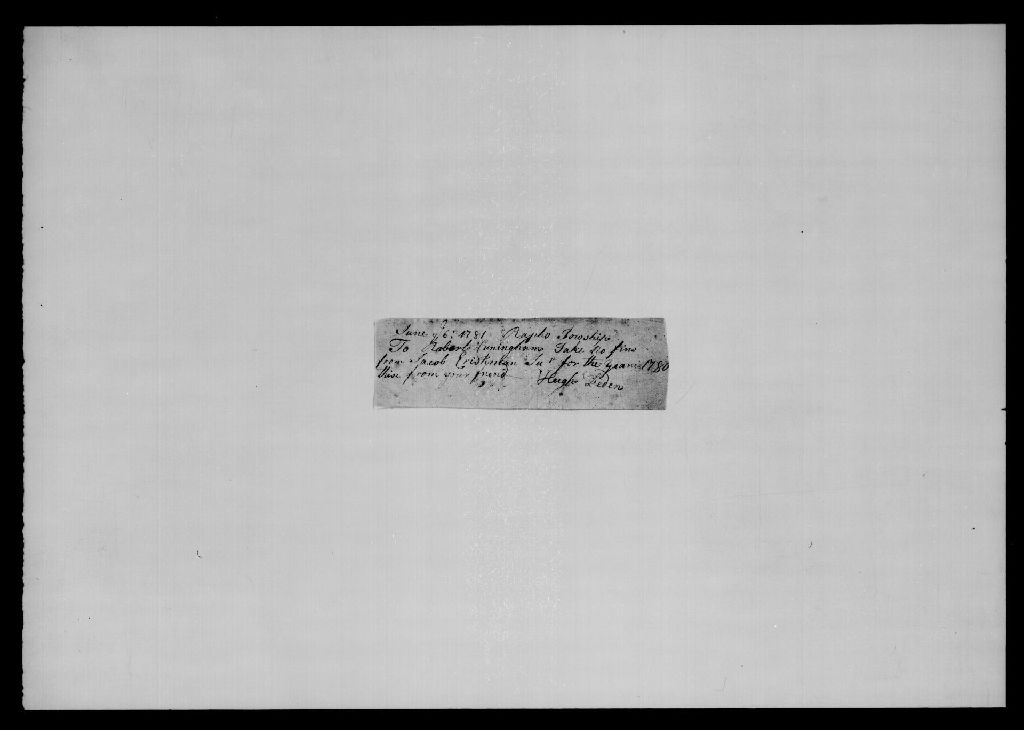 June ye 6th 1781 Rapho Township
To Robert Cuningham Take no fine
from Jacob Eristman Junr for the year 1780
this from your frend Hugh Peden